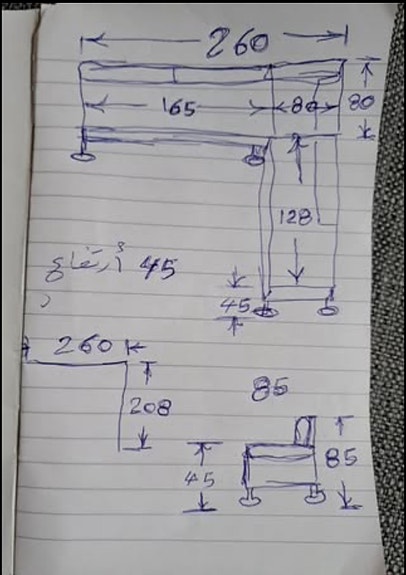 260
165 80 80
128
أرتفاع 45
45
260
208
85
85
45